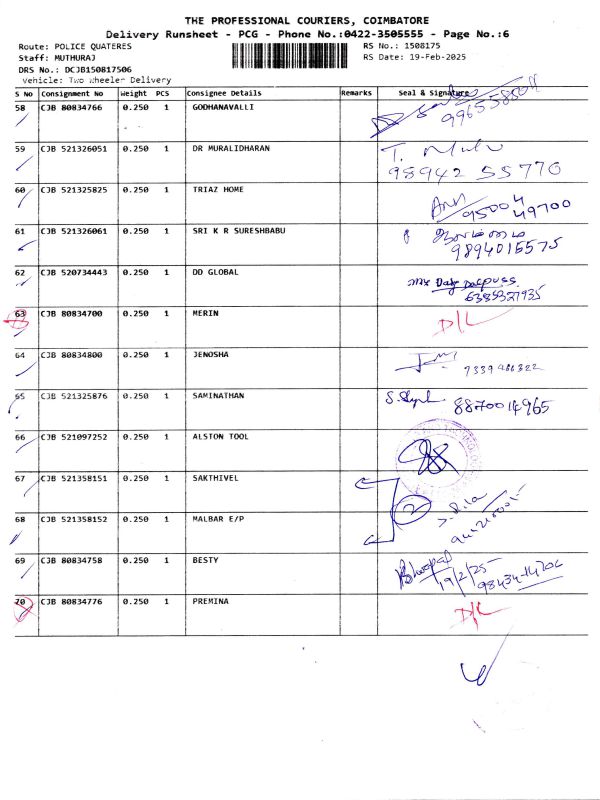 THE PROFESSIONAL COURIERS, COIMBATORE
Delivery Runsheet - PCG - Phone No.:0422-3505555 - Page No.:6
Route: POLICE QUATERES RS No.: 1508175
Staff: MUTHURAJ RS Date: 19-Feb-2025
DRS No.: DCJB150817506
Vehicle: Two Wheeler Delivery
S No Consignment No Weight PCS Consignee Details Remarks Seal & Signature
58 CJB 80834766 0.250 1 GODHANAVALLI
59 CJB 521326051 0.250 1 DR MURALIDHARAN
98942 55770
60 CJB 521325825 0.250 1 TRIAZ HOME
95004 49700
61 CJB 521326061 0.250 1 SRI K R SURESHBABU
9894015575
62 CJB 520734443 0.250 1 DD GLOBAL
6385327935
63 CJB 80834700 0.250 1 MERIN D/L
64 CJB 80834800 0.250 1 JENOSHA
65 CJB 521325876 0.250 1 SAMINATHAN 8870014965
66 CJB 521097252 0.250 1 ALSTON TOOL
67 CJB 521358151 0.250 1 SAKTHIVEL
2
68 CJB 521358152 0.250 1 MALBAR E/P
69 CJB 80834758 0.250 1 BESTY
19/2/25
98434-14702
70 CJB 80834776 0.250 1 PREMINA D/L